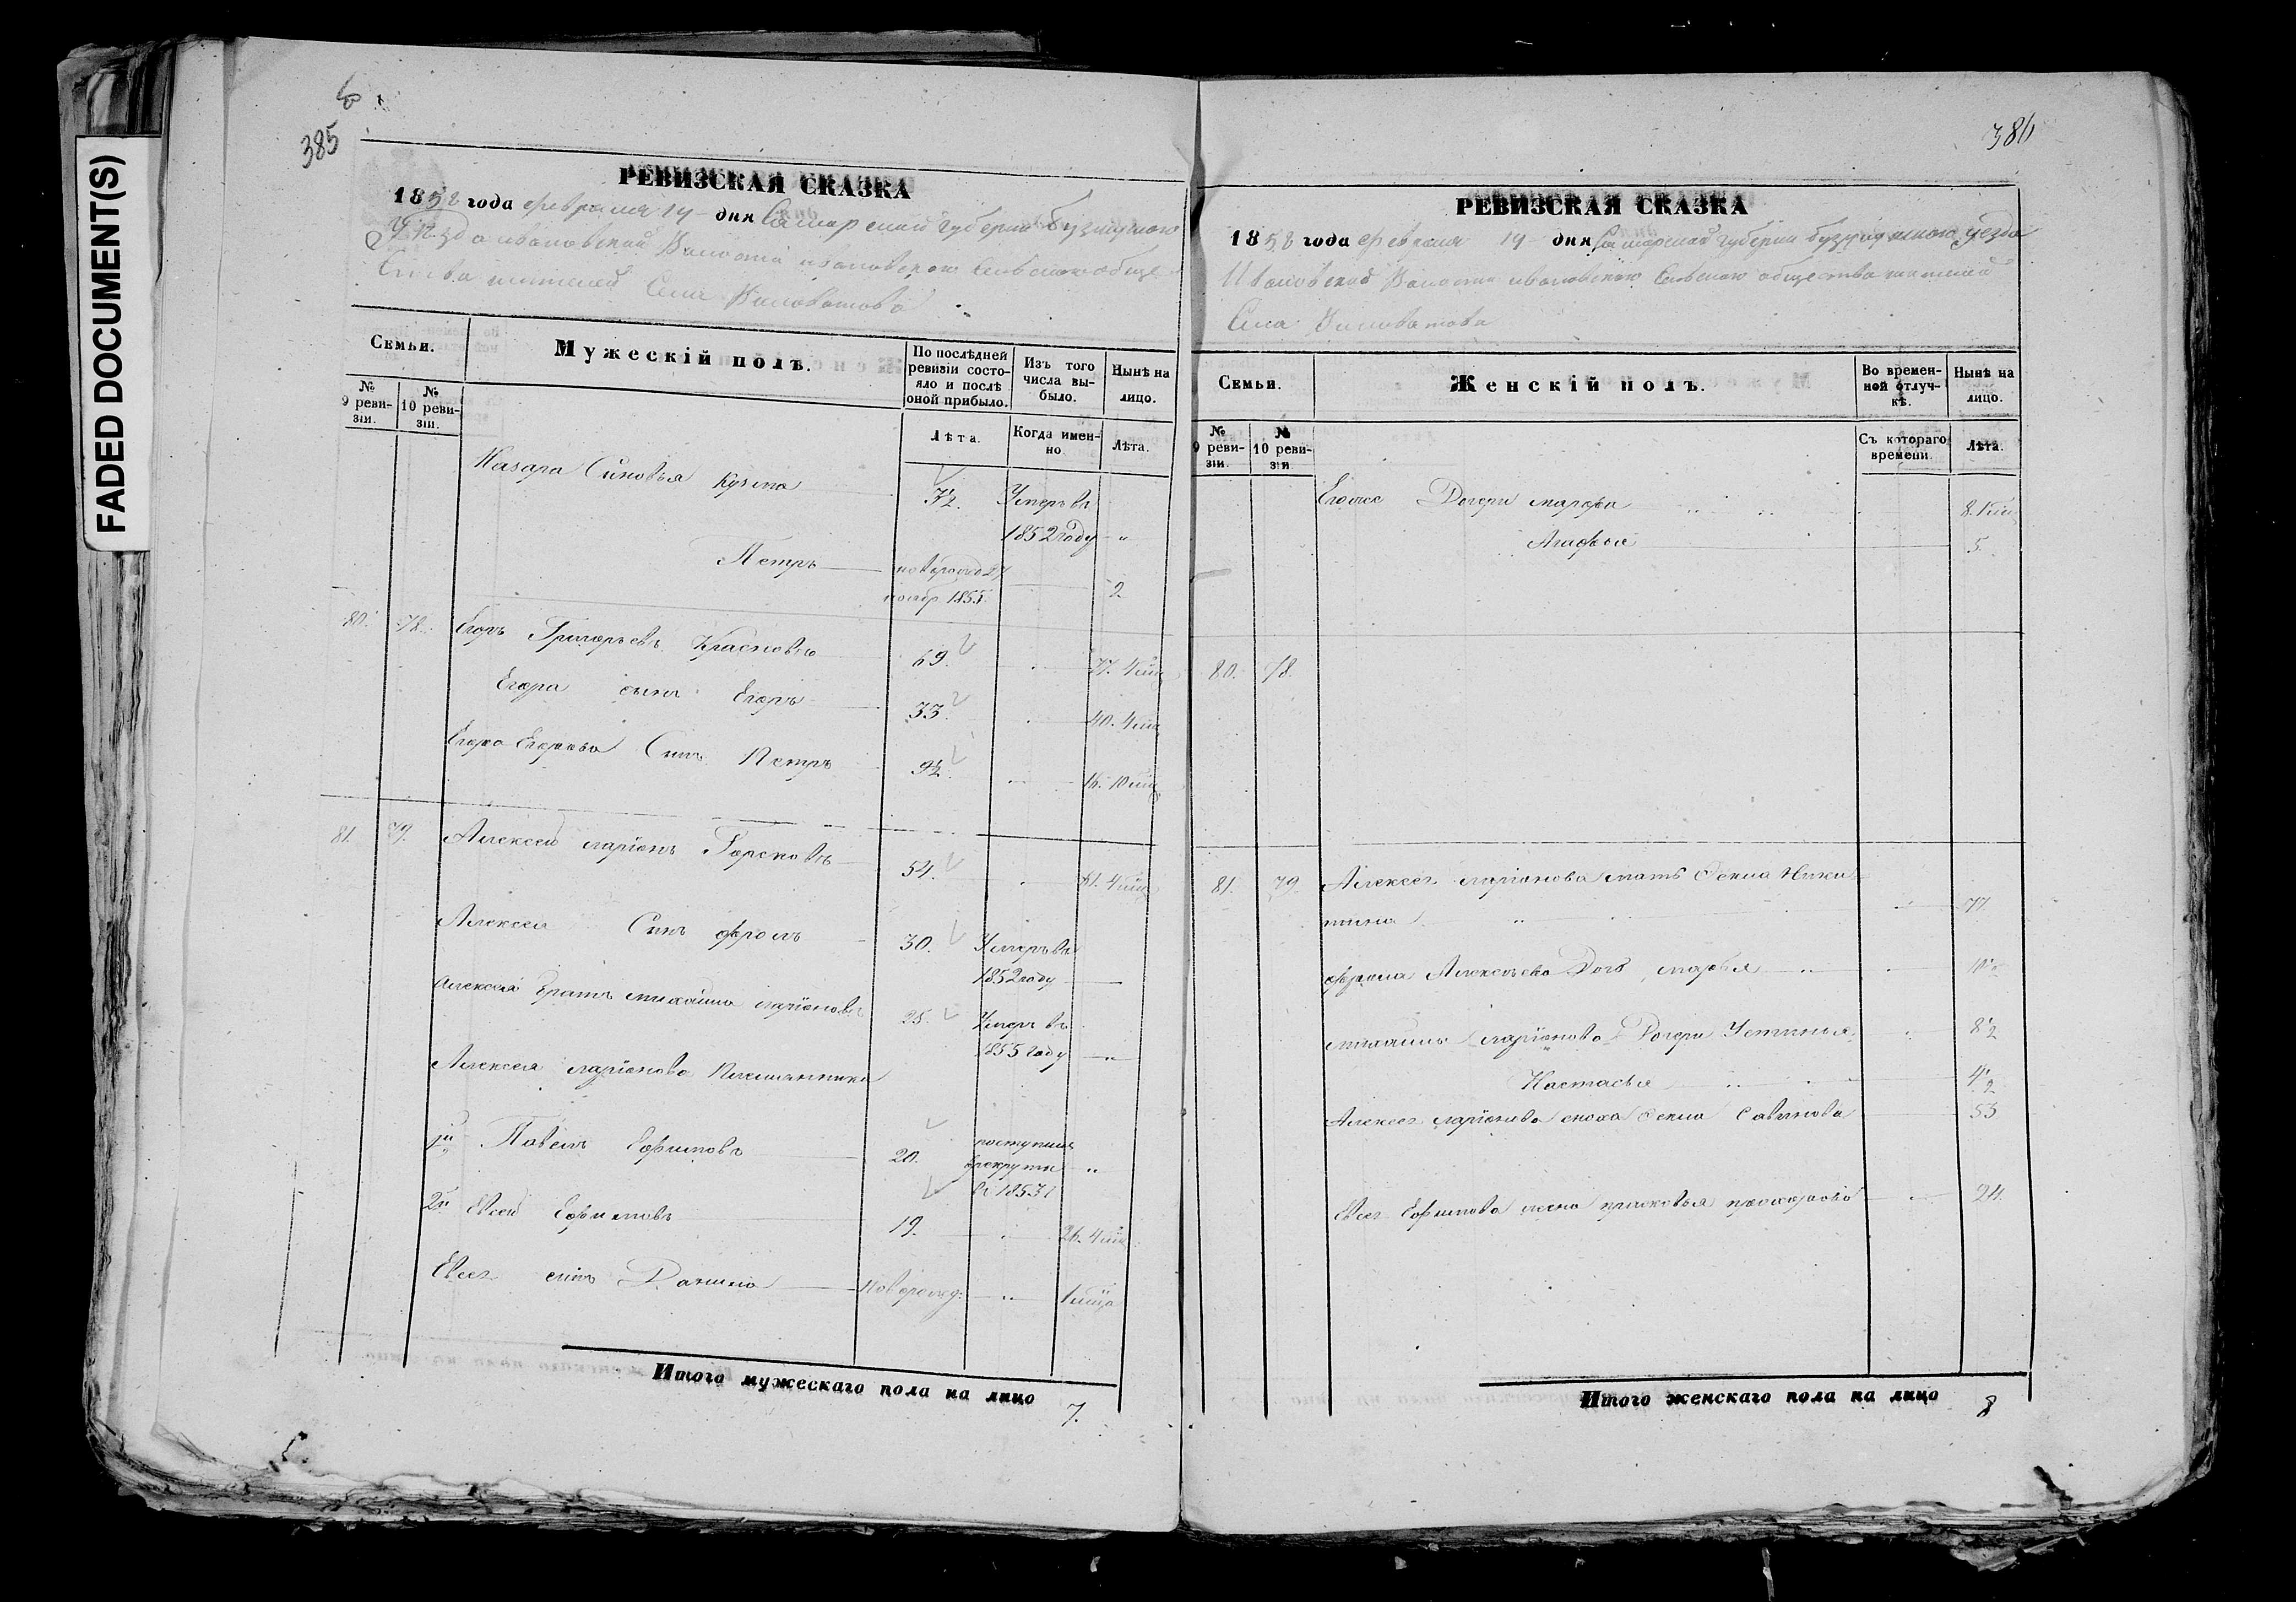 FADED DOCUMENT(S)
385
РЕВИЗСКАЯ СКАЗКА
1858 года февраля 14 дня Самарской губернии Бузулукского
Уезда ивановской Волости ивановского Сельского обще
ства жителей Села Виловатова
Семьи.
Мужескій полъ.
По послѣдней ревизіи состояло и послѣ оной прибыло.
Изъ того числа выбыло.
Нынѣ на лицо.
№ 9 ревизіи.
№ 10 ревизіи.
Лѣта.
Когда именно
Лѣта.
Назара Сыновья Кузма 3½. Умеръ въ
1852 году "
Петръ новорожд 27
ноябр. 1855. 2
80. 78. Егоръ Григорьевъ 69. 77. 4 мца
Егора сынъ Егоръ 33. 40. 4 мца
Егора Егорова Сынъ Петръ 9½. 16. 10 мца
81. 79. Алексей ларіонъ 54. 61. 4 мца
Алексея Сынъ фролъ 30. Умеръ въ
1852 году
Алексея Братъ михайла ларіоновъ 25. Умеръ въ
1855 году "
Алексея ларіонова Племянники
1й Павелъ Ефимовъ 20. поступилъ
врекруты "
в 1853 г
2й Евсей Ефимовъ 19. 26. 4 мца
Евсея сынъ Данила новорожд: " 1 мца
Итого мужескаго пола на лицо
7.
386
РЕВИЗСКАЯ СКАЗКА
1858 года февраля 14 дня Самарской губернии бузулукского уезда
Ивановской Волости ивановского Сельского общества жителей
Села Виловатова
Семьи.
Женскій полъ.
Во временной отлучкѣ.
Нынѣ на лицо.
№ 9 ревизіи.
№ 10 ревизіи
Съ котораго времени.
Лѣта.
Дочери марфа 8.
Агафья 5.
80. 78.
81. 79. Алексея ларіонова мать Никитина 77
фрола Алексеева Дочь марья
михайлы ларіонова Дочери Устинья 8½
Настасья 4½
Алексея ларіонова сноха Савинова 53
Евсея Ефимова жена прасковья 24.
Итого женскаго пола на лицо
8